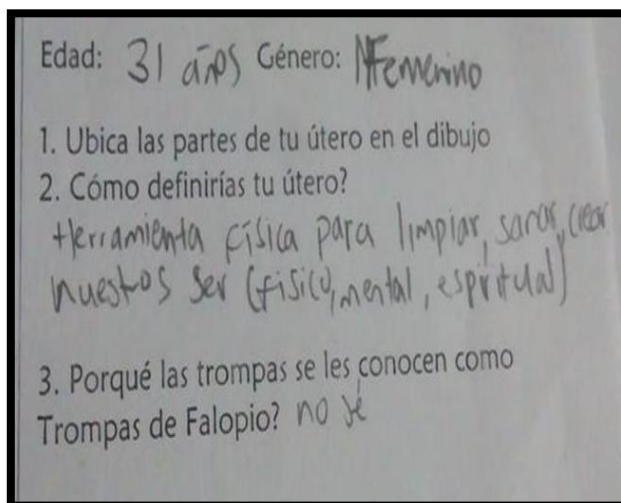 Edad: 31 años Género: Femenino
1. Ubica las partes de tu útero en el dibujo
2. Cómo definirías tu útero?
Herramienta física para limpiar, sanar, crear
nuestos ser (fisico, mental, espiritual)
3. Porqué las trompas se les conocen como
Trompas de Falopio? no sé